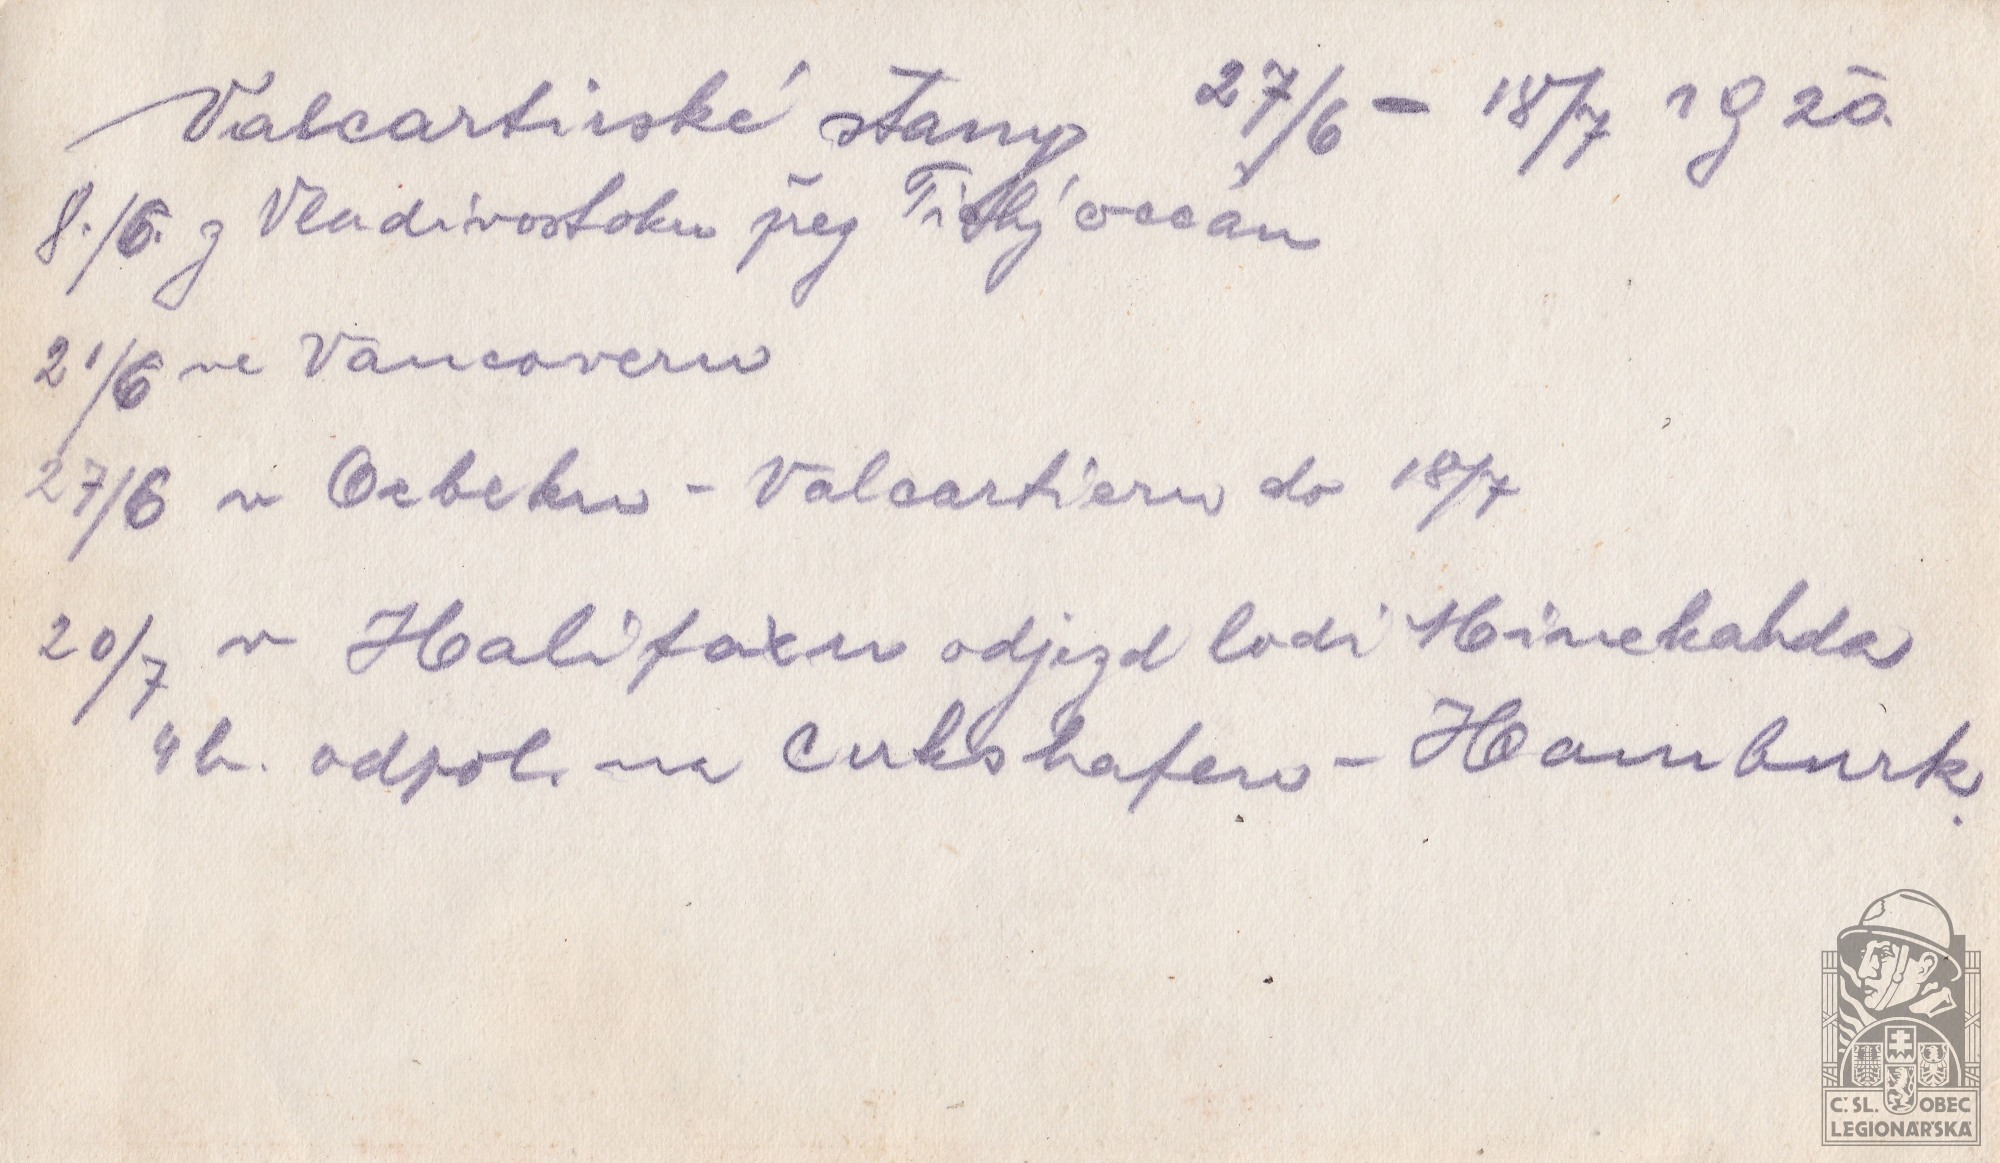 Valcartirské stany 27/6 - 18/7 1920.
8./6. z Vladivostoku přez Tichý oceán
21/6 ve Vancoveru
27/6 v Qebeku - Valcartieru do 18/7
20/7 v Halifaxu odjezd lodi Minekahda
4 h. odpol. na Cukshafen - Hamburk.
Č. SL. OBEC
LEGIONÁŘSKÁ